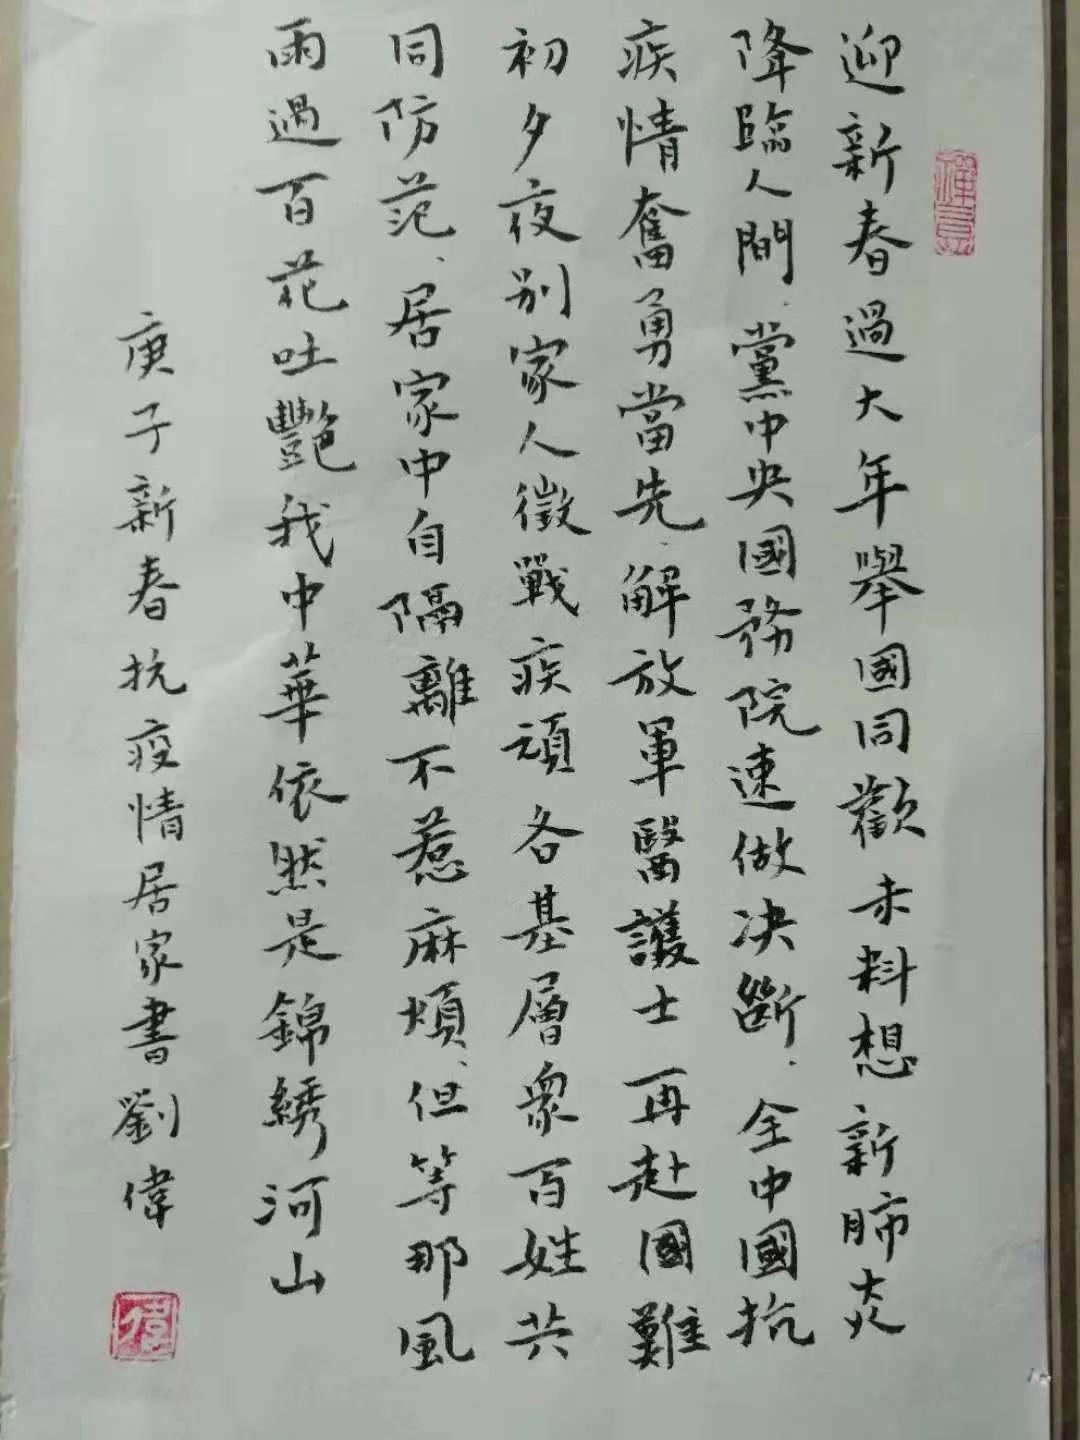 迎新春過大年舉國同歡未料想新肺炎
降臨人間、黨中央國務院速做决斷、全中國抗
疾情奮勇當先、解放軍醫護士再赴國難
初夕夜别家人徵戰疾頑各基層衆百姓共
同防范、居家中自隔離不惹麻煩、但等那風
雨過百花吐艷我中華依然是錦綉河山
庚子新春抗疫情居家書劉偉
偉